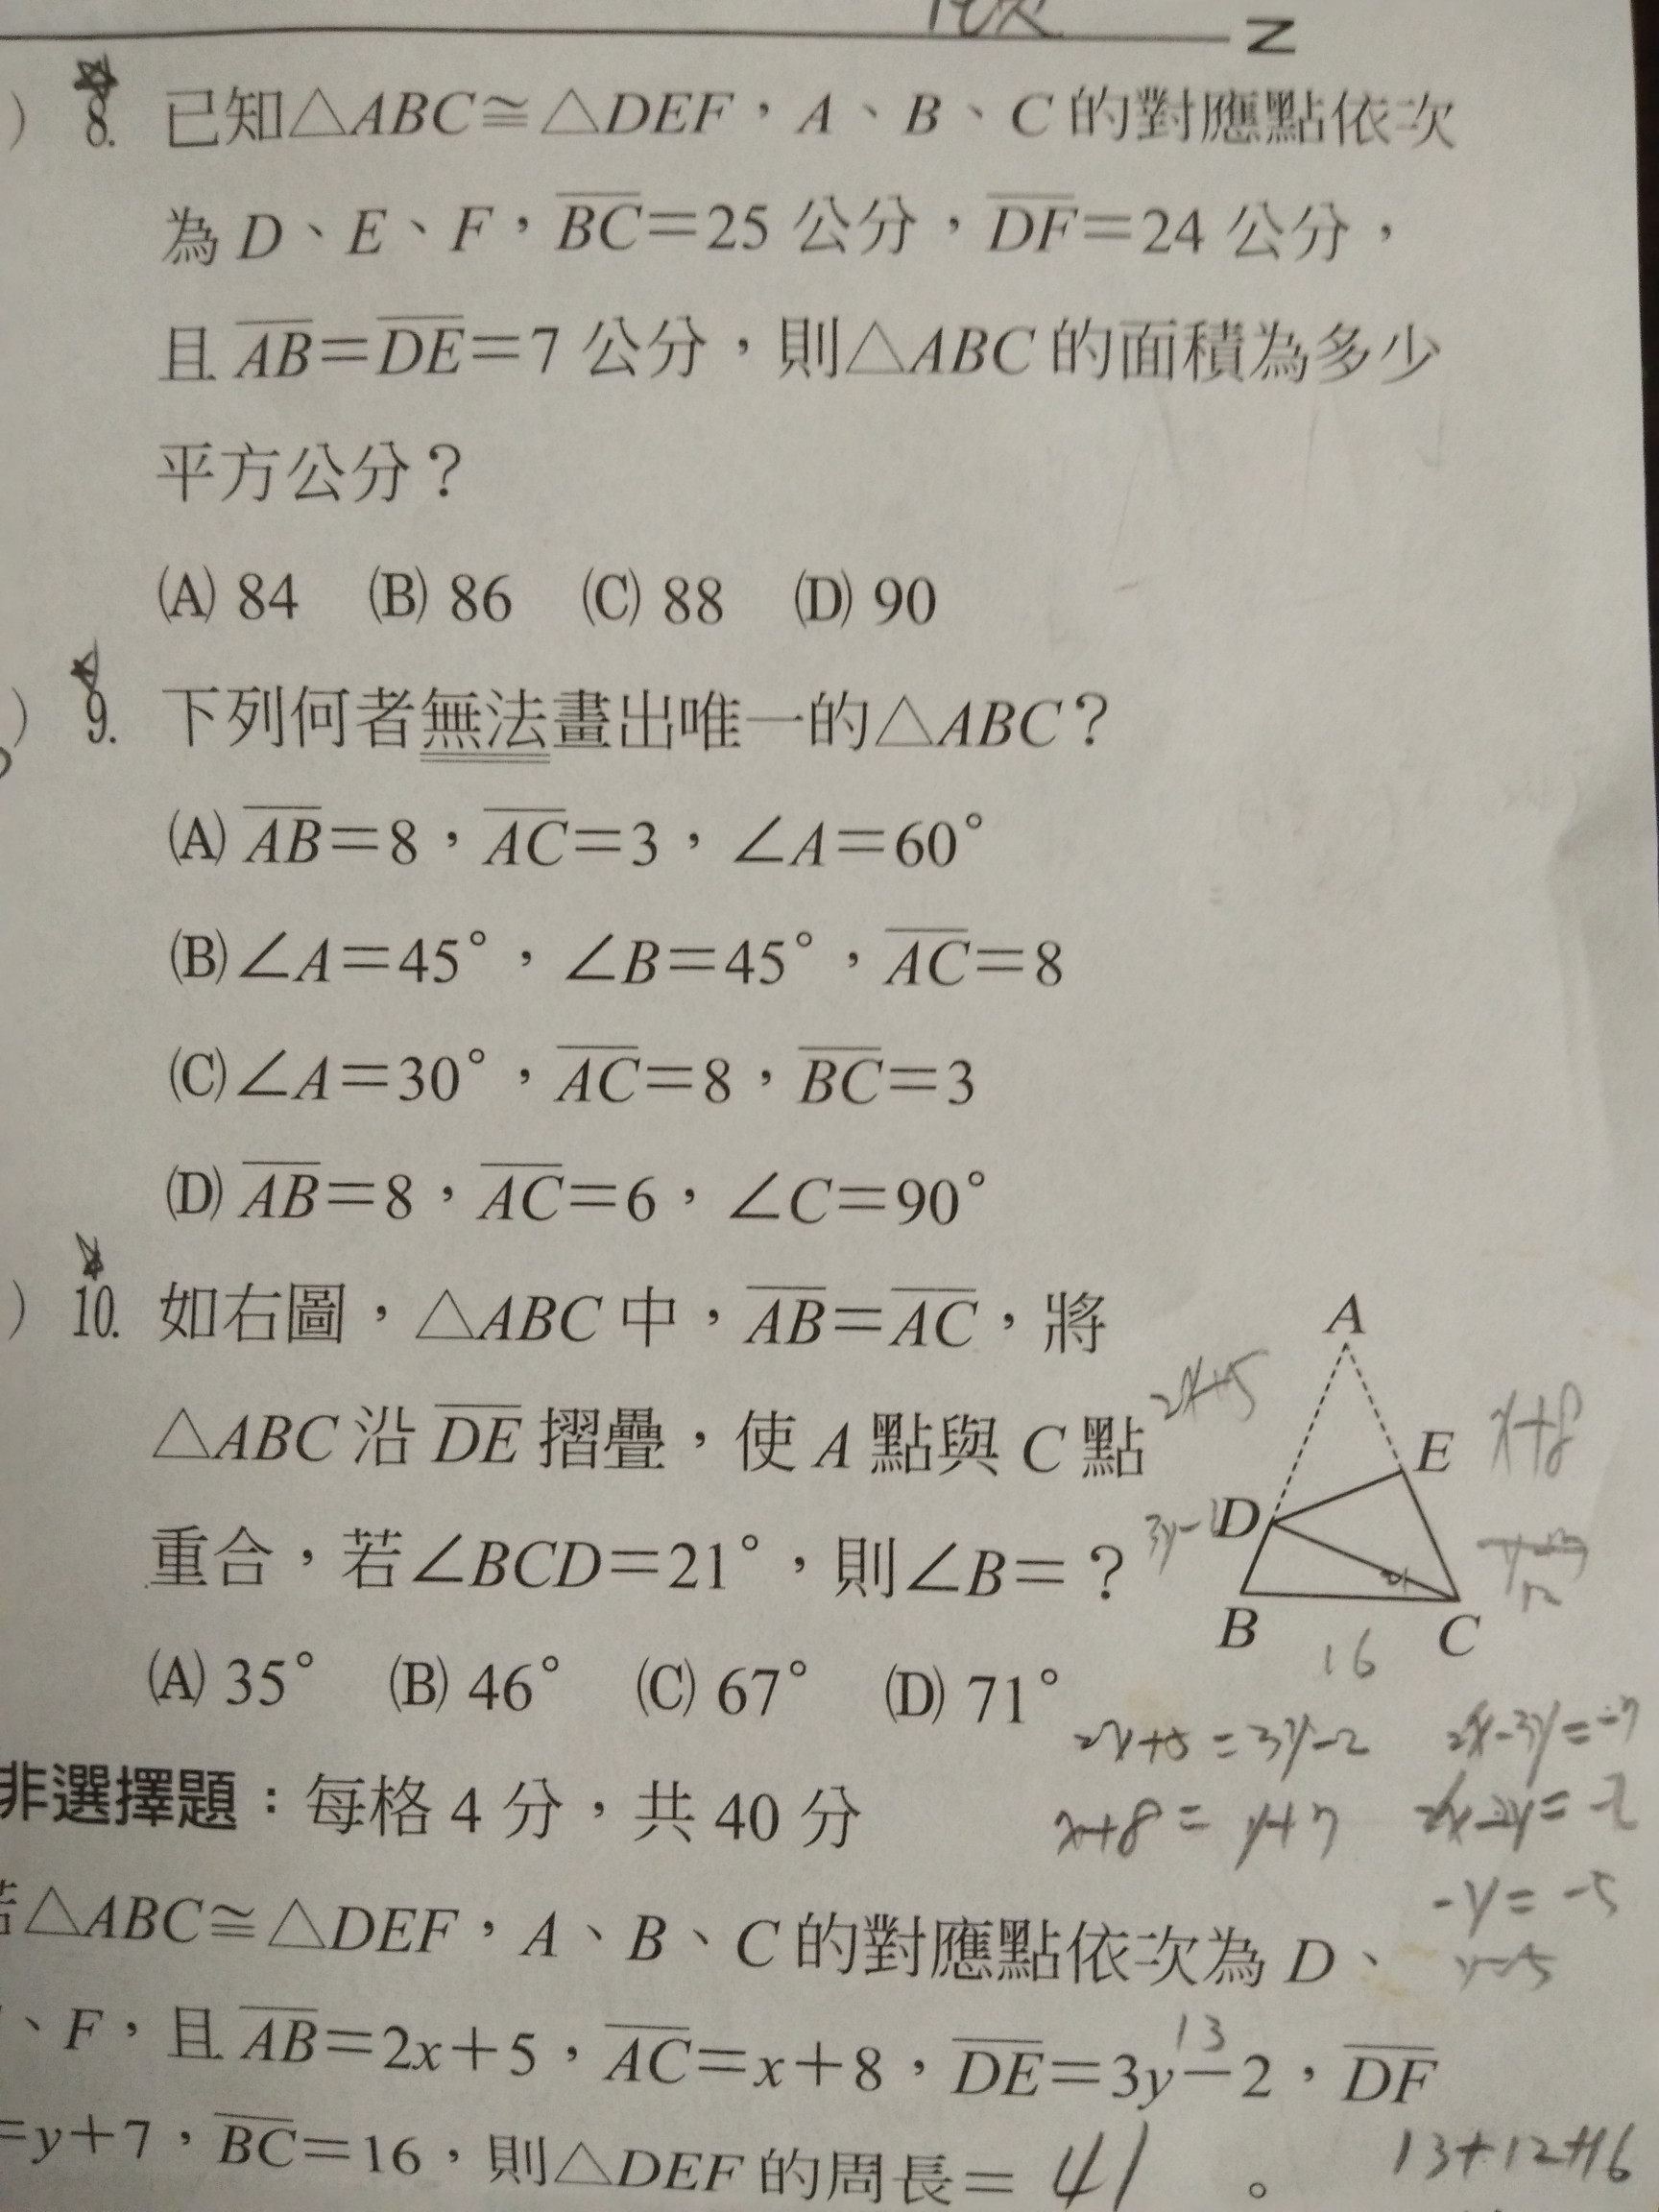 N
) 8. 已知△ABC≅△DEF，A、B、C 的對應點依次
為 D、E、F，BC=25 公分，DF=24 公分，
且 AB=DE=7 公分，則△ABC 的面積為多少
平方公分？
(A) 84 (B) 86 (C) 88 (D) 90
) 9. 下列何者無法畫出唯一的△ABC？
(A) AB=8，AC=3，∠A=60°
(B)∠A=45°，∠B=45°，AC=8
(C)∠A=30°，AC=8，BC=3
(D) AB=8，AC=6，∠C=90°
) 10. 如右圖，△ABC 中，AB=AC，將
△ABC 沿 DE 摺疊，使 A 點與 C 點
重合，若∠BCD=21°，則∠B=？
(A) 35° (B) 46° (C) 67° (D) 71°
A
2x+5
E
x+8
D
3y-
21
12
B
C
16
2x+5=3y-2
2x-3y=-7
x+8=y+7
2x-2y=-2
-y=-5
y=5
非選擇題：每格 4 分，共 40 分
△ABC≅△DEF，A、B、C 的對應點依次為 D、
、F，且 AB=2x+5，AC=x+8，DE=3y-2，DF
13
=y+7，BC=16，則△DEF 的周長= 41 。
13+12+16